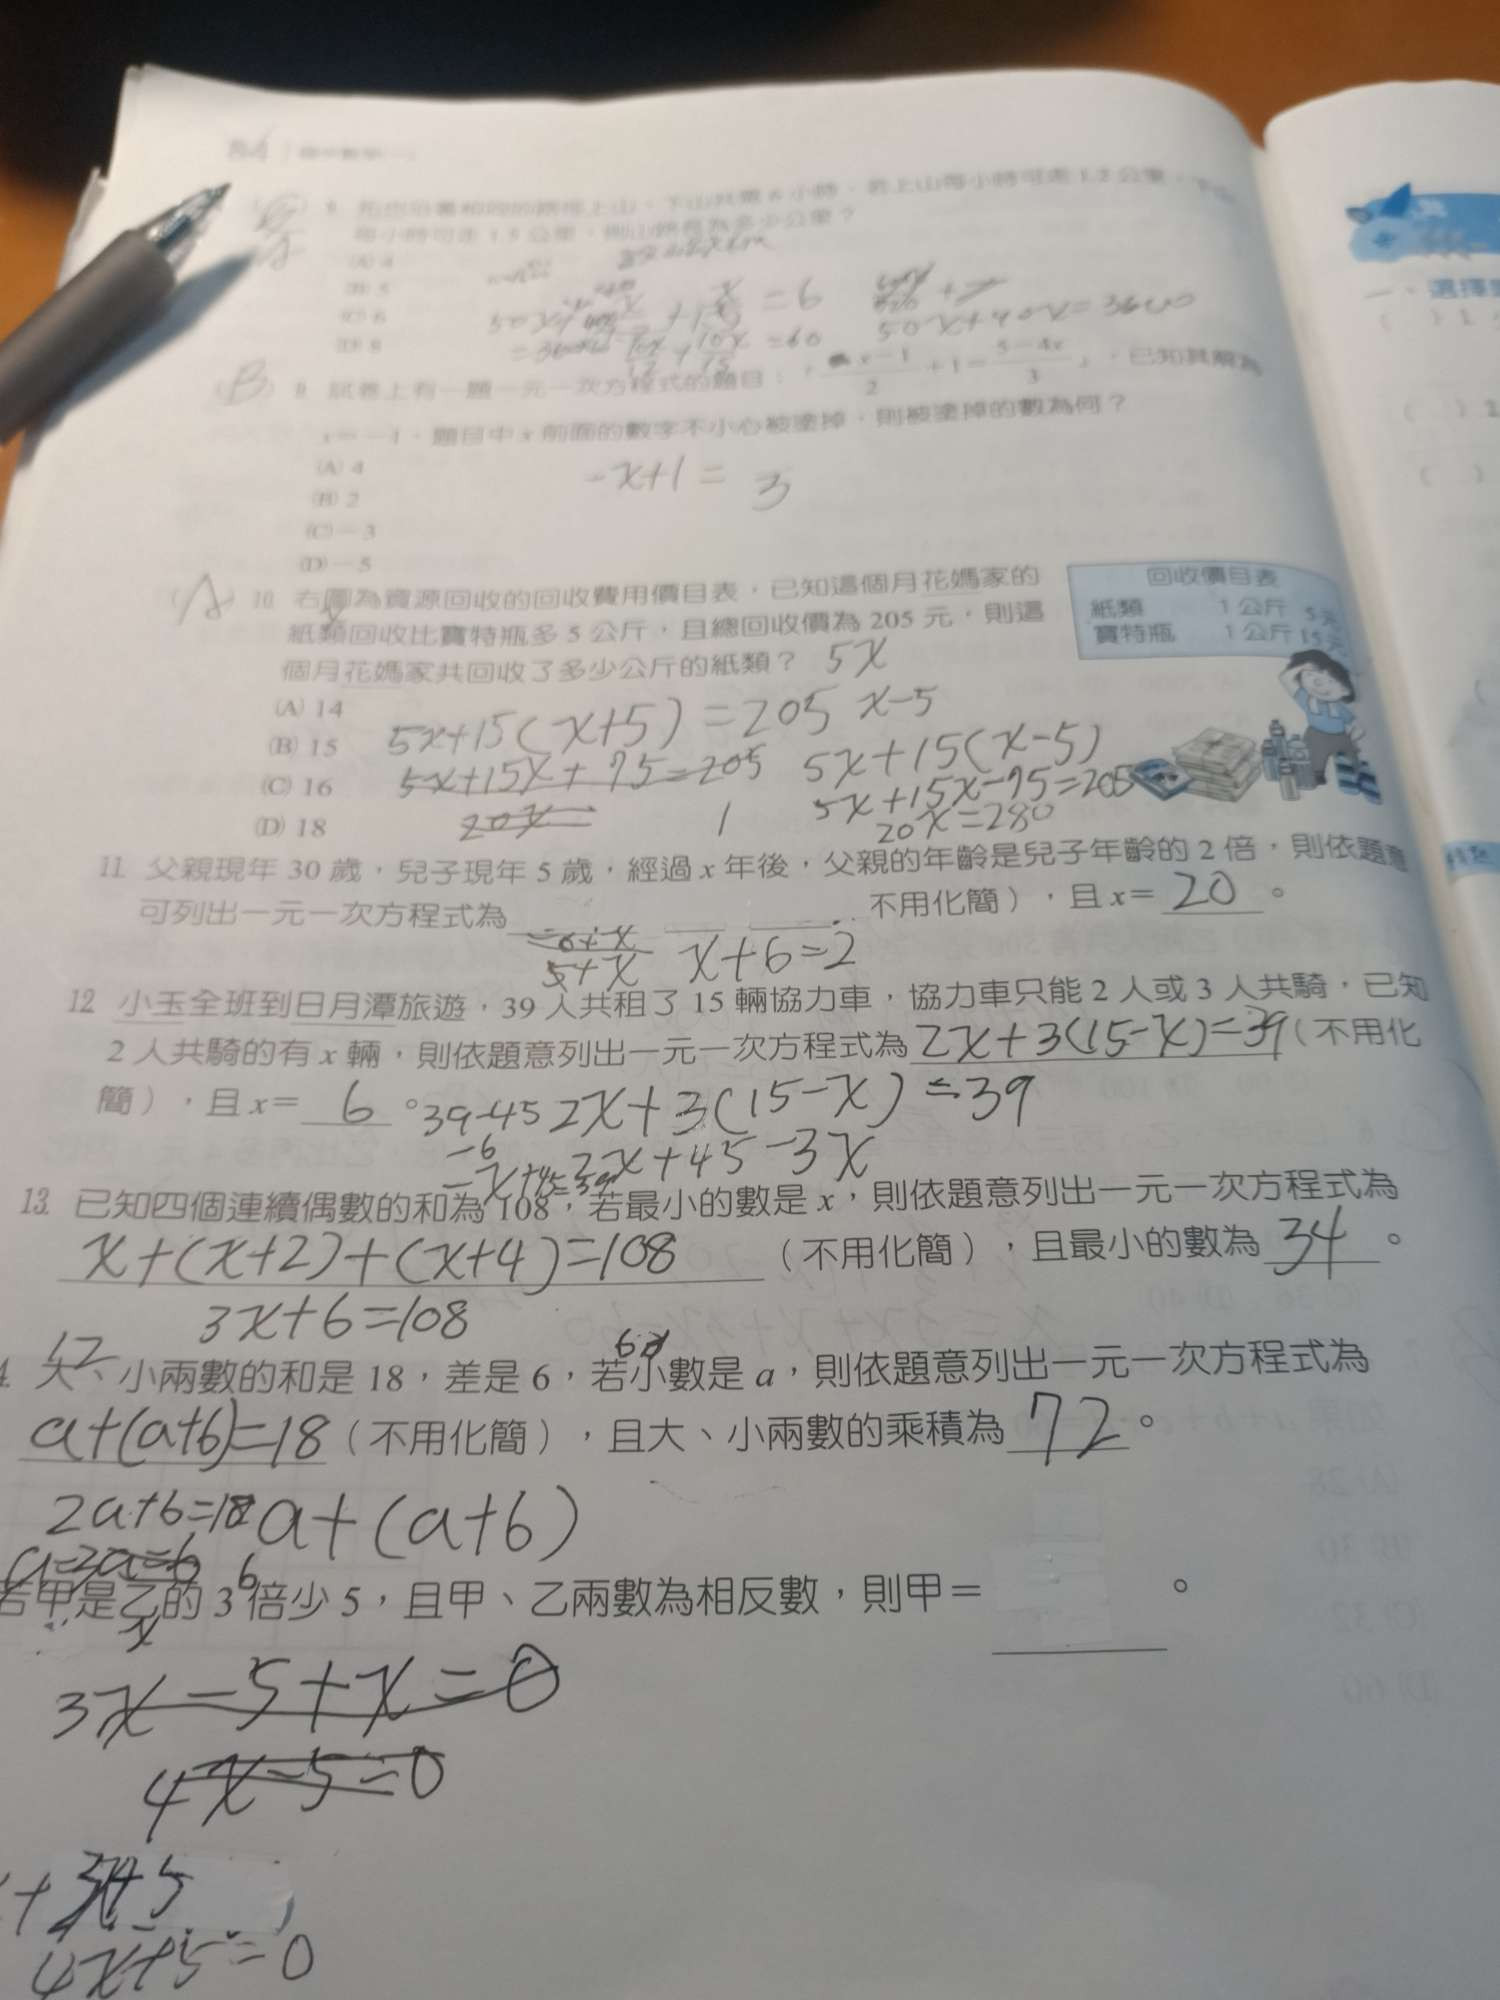 84
上山、下山共需6小時，若上山每小時可走1.2公里，下山
每小時可走1.5公里，則山路長為多少公里？
(A) 4
(B) 5
(C) 6
(D) 8
= 6
50x+40x=3600
=60
(B) 9. 試卷上有一題一元一次方程式的題目：「 x－1 / 2 ＋1＝ 5－4x / 3 」，已知其解為
x＝－1，題目中 x 前面的數字不小心被塗掉，則被塗掉的數為何？
(A) 4
(B) 2
(C)－3
(D)－5
-x+1= 3
(A) 10. 右圖為資源回收的回收費用價目表，已知這個月花媽家的
紙類回收比寶特瓶多 5 公斤，且總回收價為 205 元，則這
個月花媽家共回收了多少公斤的紙類？ 5x
回收價目表
紙類 1 公斤 5 元
寶特瓶 1 公斤 15 元
(A) 14
(B) 15
(C) 16
(D) 18
x-5
5x+15(x+5)=205
5x+15x+75=205
20x=
5x+15(x-5)
5x+15x-75=205
20x=280
11. 父親現年 30 歲，兒子現年 5 歲，經過 x 年後，父親的年齡是兒子年齡的 2 倍，則依題意
可列出一元一次方程式為 不用化簡），且 x＝ 20 。
5+x
x+6=2
12. 小玉全班到日月潭旅遊，39 人共租了 15 輛協力車，協力車只能 2 人或 3 人共騎，已知
2 人共騎的有 x 輛，則依題意列出一元一次方程式為 2x+3(15-x)=39 (不用化
簡），且 x＝ 6 。
39-45 2x+3(15-x)=39
-6
2x+45-3x
-x+45=39
13. 已知四個連續偶數的和為 108，若最小的數是 x，則依題意列出一元一次方程式為
x+(x+2)+(x+4)=108 （不用化簡），且最小的數為 34 。
3x+6=108
12
4. 大、小兩數的和是 18，差是 6，若小數是 a，則依題意列出一元一次方程式為
a+(a+6)=18 （不用化簡），且大、小兩數的乘積為 72 。
2a+6=18
a+(a+6)
6
若甲是乙的 3 倍少 5，且甲、乙兩數為相反數，則甲＝ 。
x
3x-5+x=0
4x-5=0
4x+5=0
一、選擇題